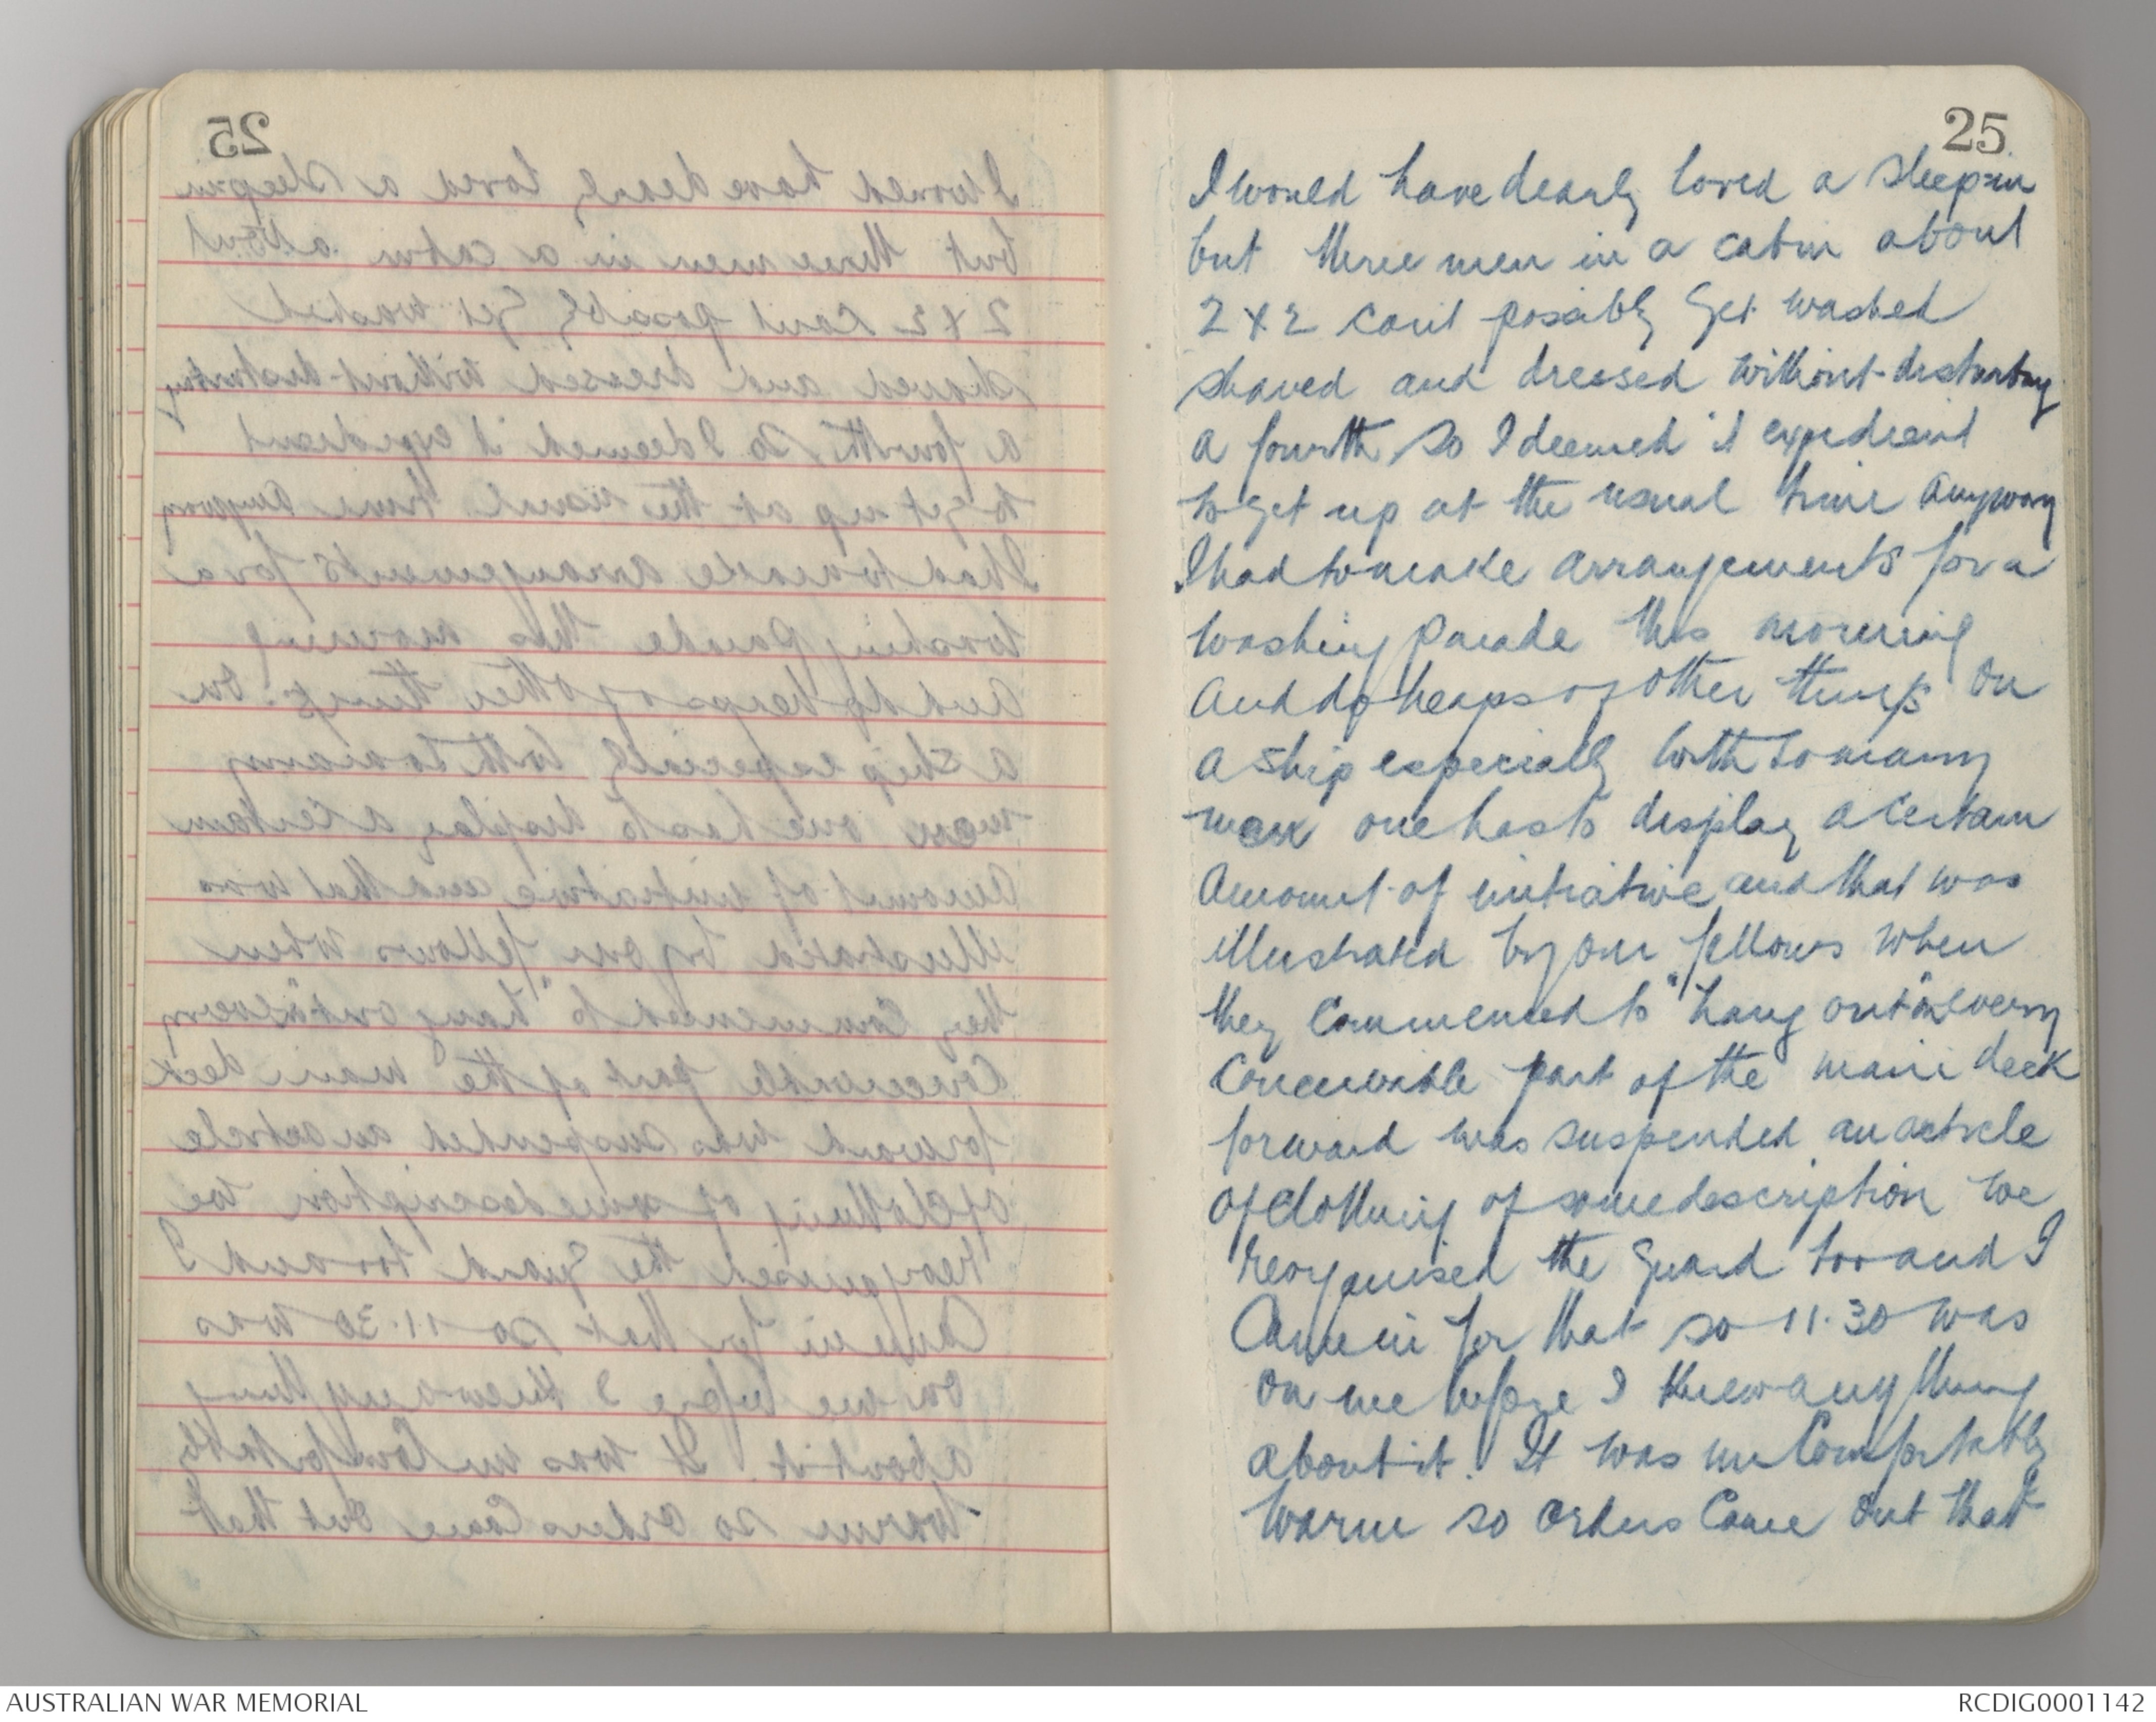 25
I would have dearly loved a sleep-in
but three men in a cabin about
2 x 2 can't possibly get washed
shaved and dressed without disturbing
a fourth so I deemed it expedient
to get up at the usual time anyway
I had to make arrangements for a
washing parade this morning
and do heaps of other things On
a ship especially with so many
men one has to display a certain
amount of initiative and that was
illustrated by our fellows when
they commenced to "hang out" on every
conceivable part of the main deck
forward was suspended an article
of clothing of some description We
reorganised the guard too and I
came in for that so 11.30 was
on me before I knew anything
about it. It was uncomfortably
warm so orders came out that
AUSTRALIAN WAR MEMORIAL
RCDIG0001142